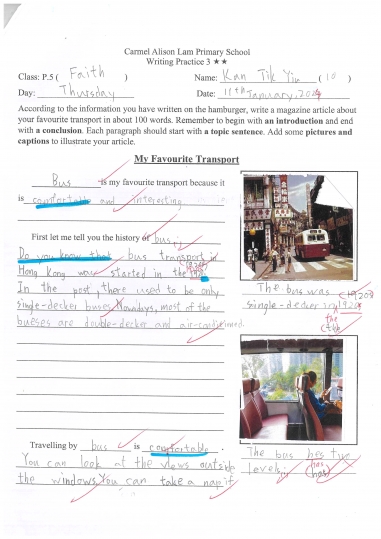 Carmel Alison Lam Primary School
Writing Practice 3 ★★
Class: P.5 ( Faith ) Name: Kan Tik Yiu ( 10 )
Day: Thursday Date: 11th January, 2024
According to the information you have written on the hamburger, write a magazine article about
your favourite transport in about 100 words. Remember to begin with an introduction and end
with a conclusion. Each paragraph should start with a topic sentence. Add some pictures and
captions to illustrate your article.
My Favourite Transport
Bus is my favourite transport because it
is comfortable and interesting.
First let me tell you the history of bus.
Do you know that bus transport in
Hong Kong was started in the
In the past, there used to be only
single-decker buses. Nowadays, most of the
bueses are double-decker and air-conditioned.
The bus was
single-decker in 192
the
Travelling by bus is comfortable.
You can look at the views outside
the windows. You can take a nap if
The bus hes two
levels.
has